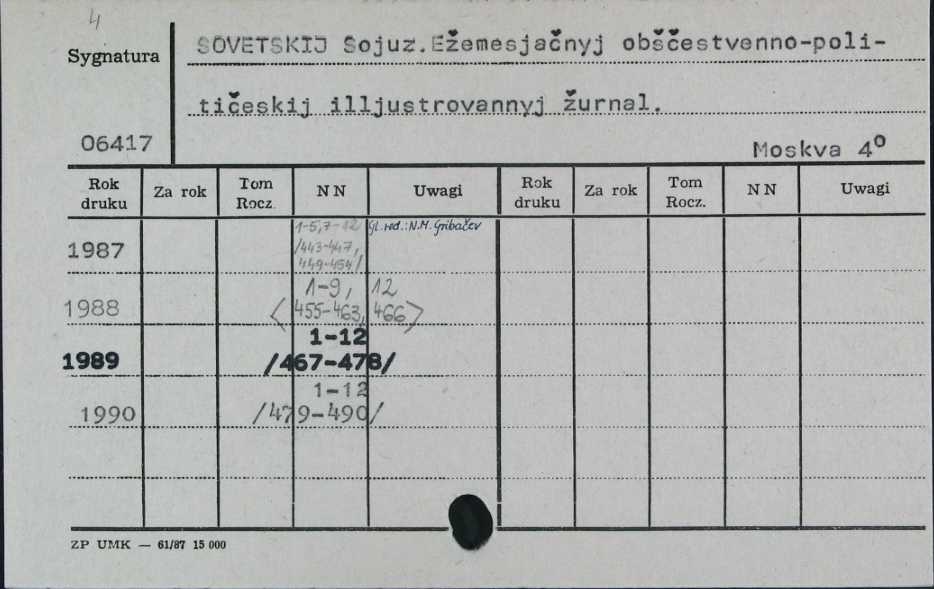 4
Sygnatura
SOVETSKIJ Sojuz.Ežemesjačnyj obščestvenno-poli-
tičeskij illjustrovannyj žurnal.
06417
Moskva 4º
Rok druku Za rok Tom Rocz. NN Uwagi Rok druku Za rok Tom Rocz. NN Uwagi
1987 1-5,7-12 Gl. red.: N.M. Gribačev
/443-447,
449-454/
1988 1-9, 12
<455-463, 466>
1989 1-12
/467-478/
1990 1-12
/479-490/
ZP UMK — 61/87 15 000